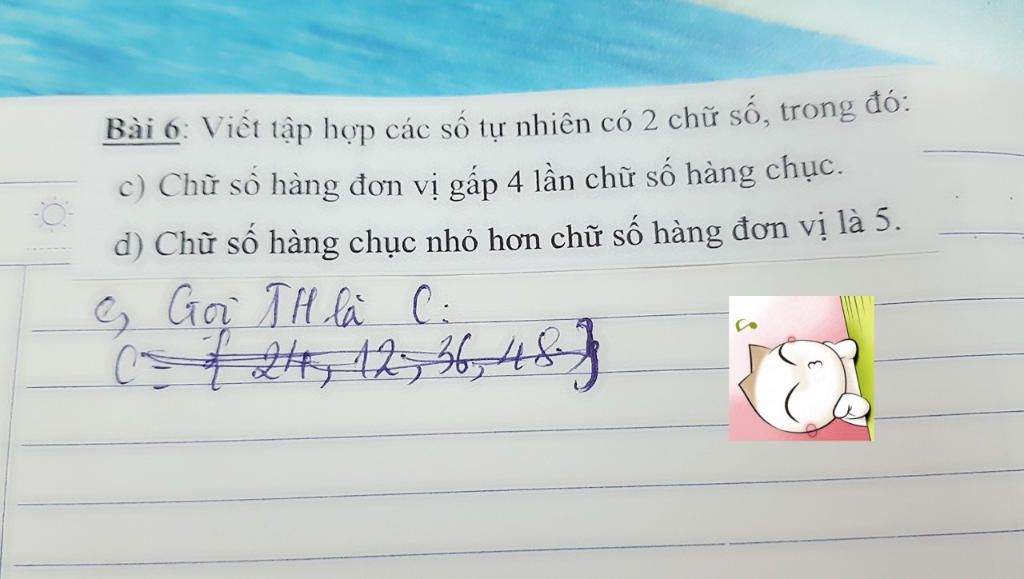 Bài 6: Viết tập hợp các số tự nhiên có 2 chữ số, trong đó:
c) Chữ số hàng đơn vị gấp 4 lần chữ số hàng chục.
d) Chữ số hàng chục nhỏ hơn chữ số hàng đơn vị là 5.
c, Gọi TH là C:
C = { 24, 12, 36, 48 }